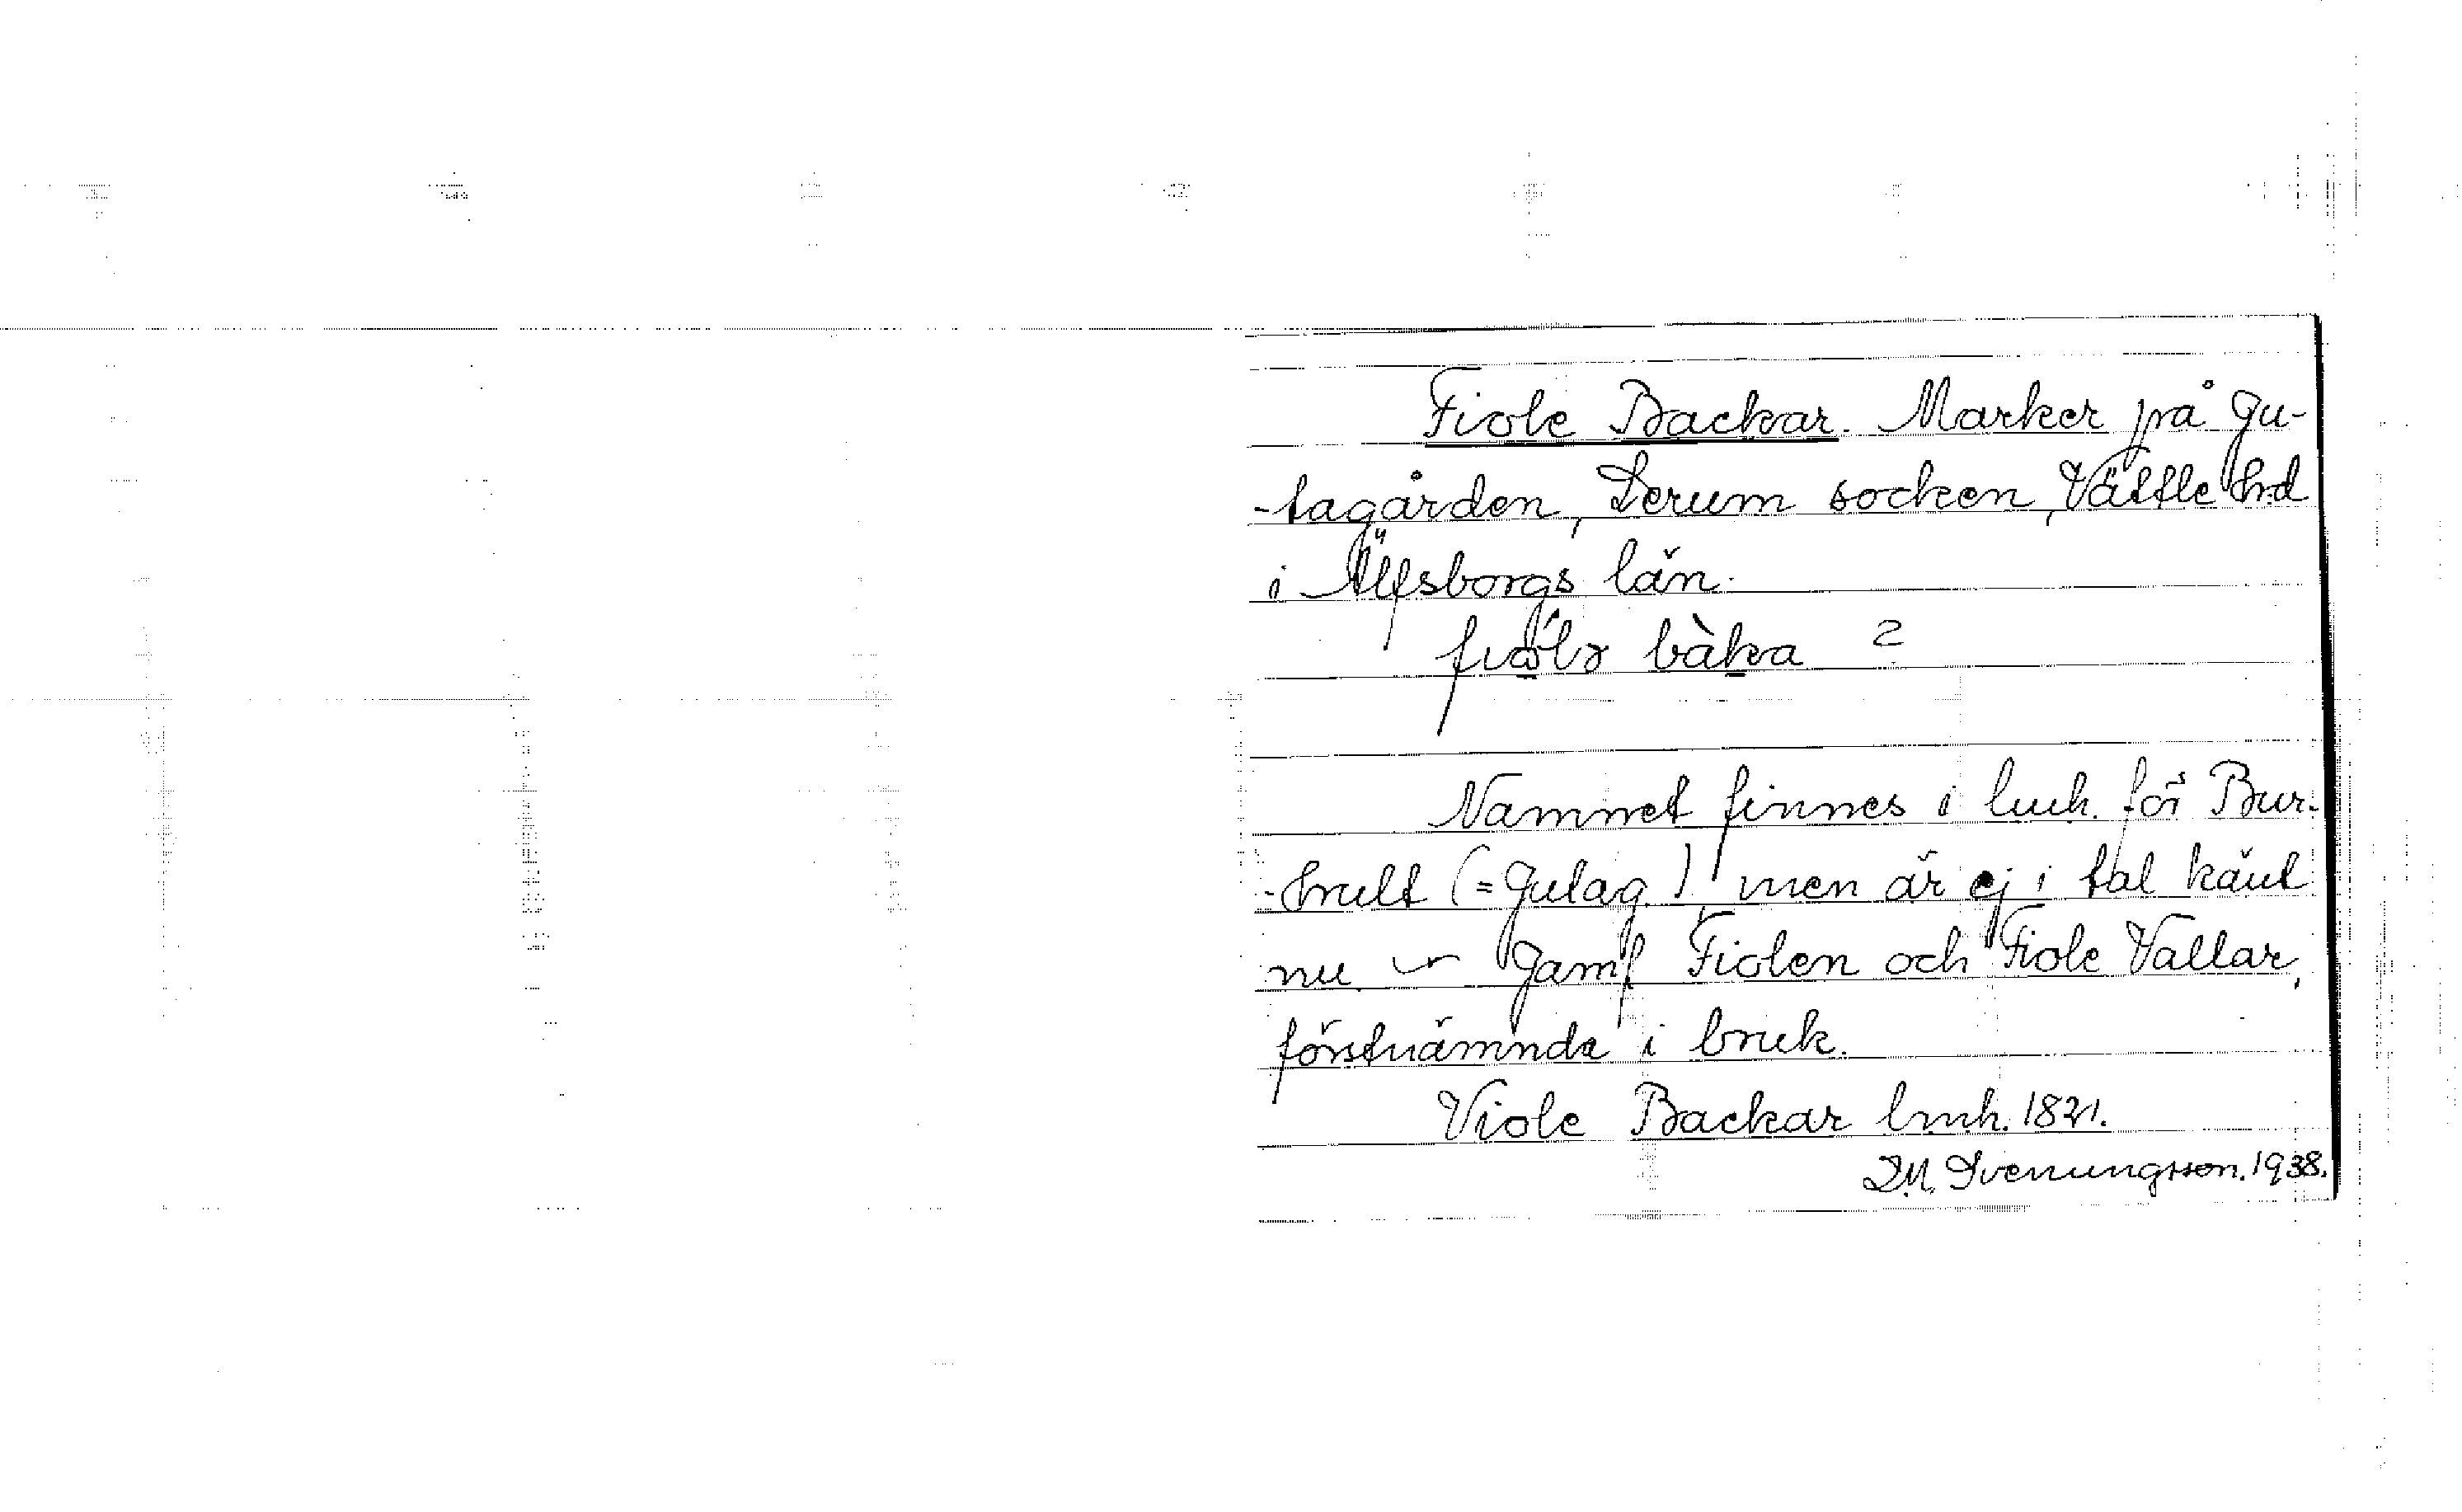 Fiole Backar. Marker på Gu-
-tagården, Lerum socken, Vättle hrd
i Älfsborgs län.
Namnet finnes i lmh. för Bur-
-hult (= Gutag.), men är ej i tal känt
nu. — Jämf Fiolen och Fiole Vallar,
förstnämnda i bruk.
Viole Backar lmh. 1821.
D.M. Svenungsson. 1938.